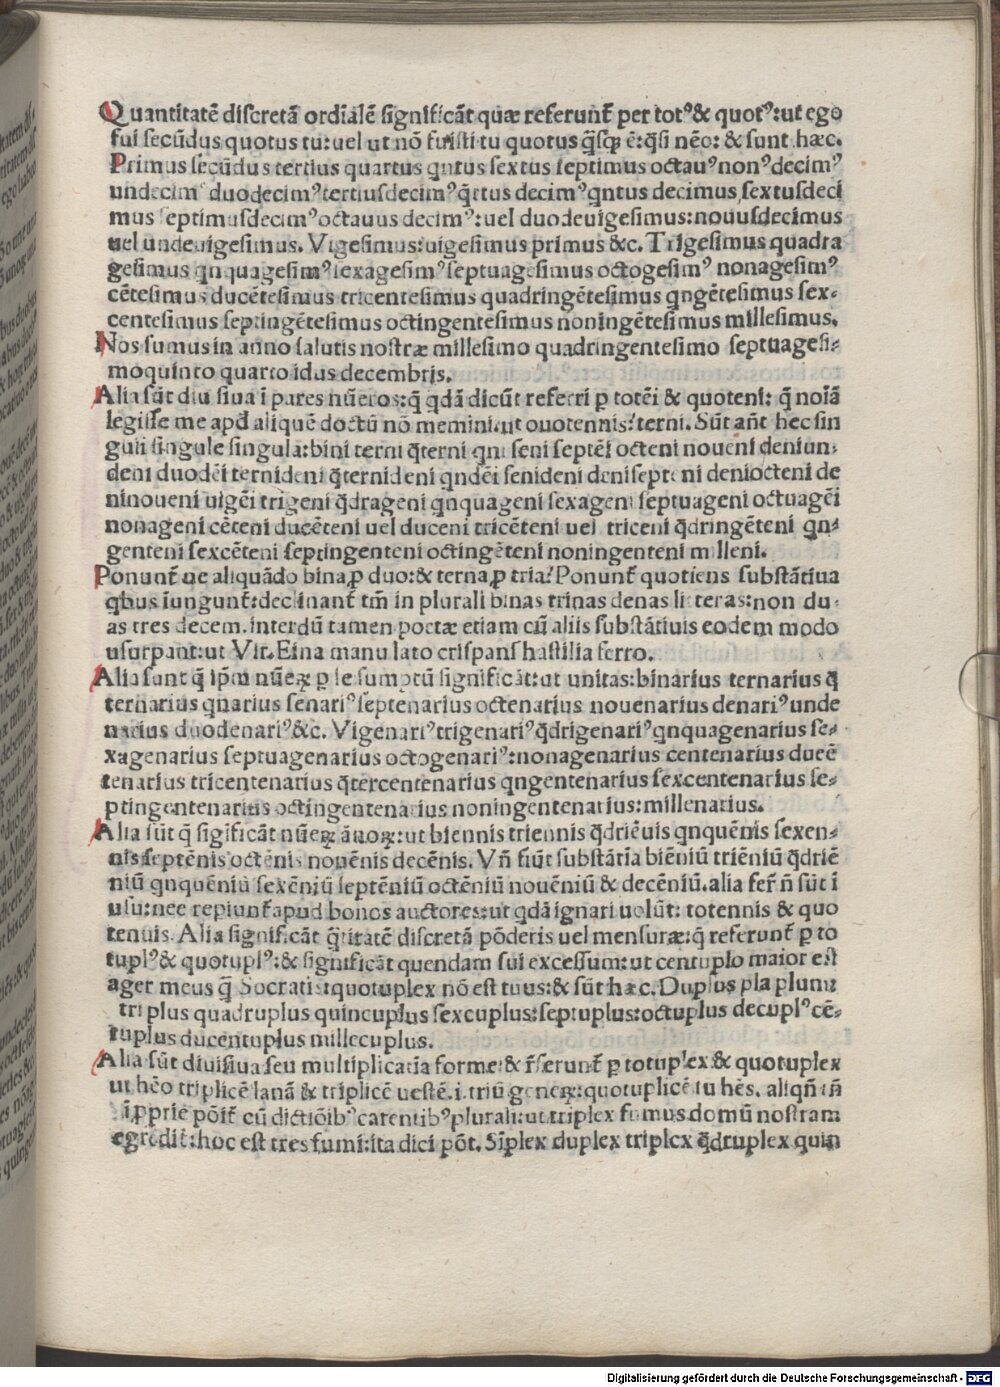 Quantitatē discretā ordīalē significāt quæ referunt̃ per totꝰ & quotꝰ: ut ego
fui secūdus quotus tu: uel ut nō fuisti tu quotus q̄sq̨ ē: q̄si nēo: & sunt hæc.
Primus secūdus tertius quartus qntus sextus septimus octauꝰ nonꝰ decimꝰ
undecimꝰ duodecimꝰ tertiusdecimꝰ q̄rtus decimꝰ qntus decimus sextusdeci
mus septimusdecimꝰ octauus decimꝰ: uel duodeuigesimus: nouusdecimus
uel undeuigesimus. Vigesimus: uigesimus primus &c. Trigesimus quadra
gesimus qnquagesimꝰ sexagesimꝰ septuagesimus octogesimꝰ nonagesimꝰ
cētesimus ducētesimus tricentesimus quadringētesimus qngētesimus sex-
centesimus septingētesimus octingentesimus noningētesimus millesimus.
Nos sumus in anno salutis nostræ millesimo quadringentesimo septuagesi-
moquinto quarto idus decembris.
Alia sūt diuisiua ī pares nūeros: q̄ qdā dicūt referri p̱ totēi & quoteni: q̄ noīā
legisse me apd̄ aliquē doctū nō memini: ut quotennis? terni. Sūt aūt hec sin
guli singule singula: bini terni q̄terni qni seni septēi octeni noueni deni un-
deni duodēi ternideni q̄ternideni qndēi senideni deniseptē ni deniocteni de
ninoueni uigēi trigeni q̄drageni qnquageni sexageni septuageni octuagēi
nonageni cēteni ducēteni uel duceni tricēteni uel triceni q̄dringēteni qn-
genteni sexcēteni septingenteni octingēteni noningenteni milleni.
Ponunt̃ ue aliquādo bina p̱ duo: & terna p̱ tria: Ponunt̃ quotiens substātiua
qbus iungunt̃: declinant̃ tm̄ in plurali binas trinas denas litteras: non du-
as tres decem. interdū tamen poetæ etiam cū aliis substātiuis eodem modo
usurpant: ut Vir. Bina manu lato crispans hastilia ferro.
Alia sunt q̄ ip̄m nūeꝝ p̱ se sumptū significāt: ut unitas: binarius ternarius q̄
ternarius qnarius senariꝰ septenarius octenarius nouenarius denariꝰ unde
narius duodenariꝰ &c. Vigenariꝰ trigenariꝰ q̄drigenariꝰ qnquagenarius se-
xagenarius septuagenarius octogenariꝰ: nonagenarius centenarius ducē
tenarius tricentenarius q̄tercentenarius qngentenarius sexcentenarius se-
ptingentenarius octingentenarius noningentenarius: millenarius.
Alia sūt q̄ sigificāt nūeꝝ ānoꝝ: ut biennis triennis q̄driēuis qnquēnis sexen-
nis septēnis octēnis nouēnis decēnis. Vñ fiūt substātia biēniū triēniū q̄driē
niū qnquēniū sexēniū septēniū octēniū nouēniū & decēniū. alia fer̄ ñ sūt ī
usu: nec repiunt̃ apud bonos auctores: ut qdā ignari uolūt: totennis & quo
tennis. Alia significāt q̄titatē discretā pōderis uel mensuræ: q̄ referunt̃ p̱ to
tuplꝰ & quotuplꝰ: & significāt quendam sui excessum: ut centuplo maior est
ager meus q̄ Socratis: quotuplex nō est tuus: & sūt hæc. Duplus pla plum
triplus quadruplus quincuplus sexcuplus: septuplus: octuplus decuplꝰ cē-
tuplus ducentuplus millecuplus.
Alia sūt diuisiua seu multiplicatia forme: & r̄ferunt̃ p̱ totuplex & quotuplex
ut hēo triplicē lanā & triplicē uestē. i. triū geneꝝ: quotuplicē tu hēs. aliqñ tñ
īp̱prie pōit̃ cū dictiōibꝰ carentibꝰ plurali: ut triplex fumus domū nostram
egredit̃: hoc est tres fumi: ita dici pōt. Sīplex duplex triplex q̄druplex quin
Digitalisierung gefördert durch die Deutsche Forschungsgemeinschaft - DFG